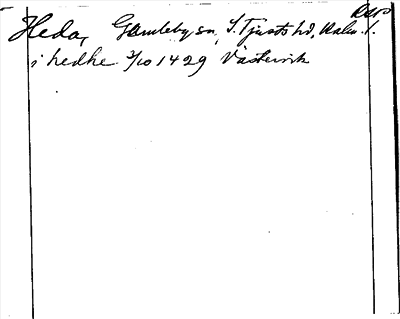 Heda, Gamleby sn, S. Tjusts hd, Kalm. l.
i hedhe 3/10 1429 Västervik